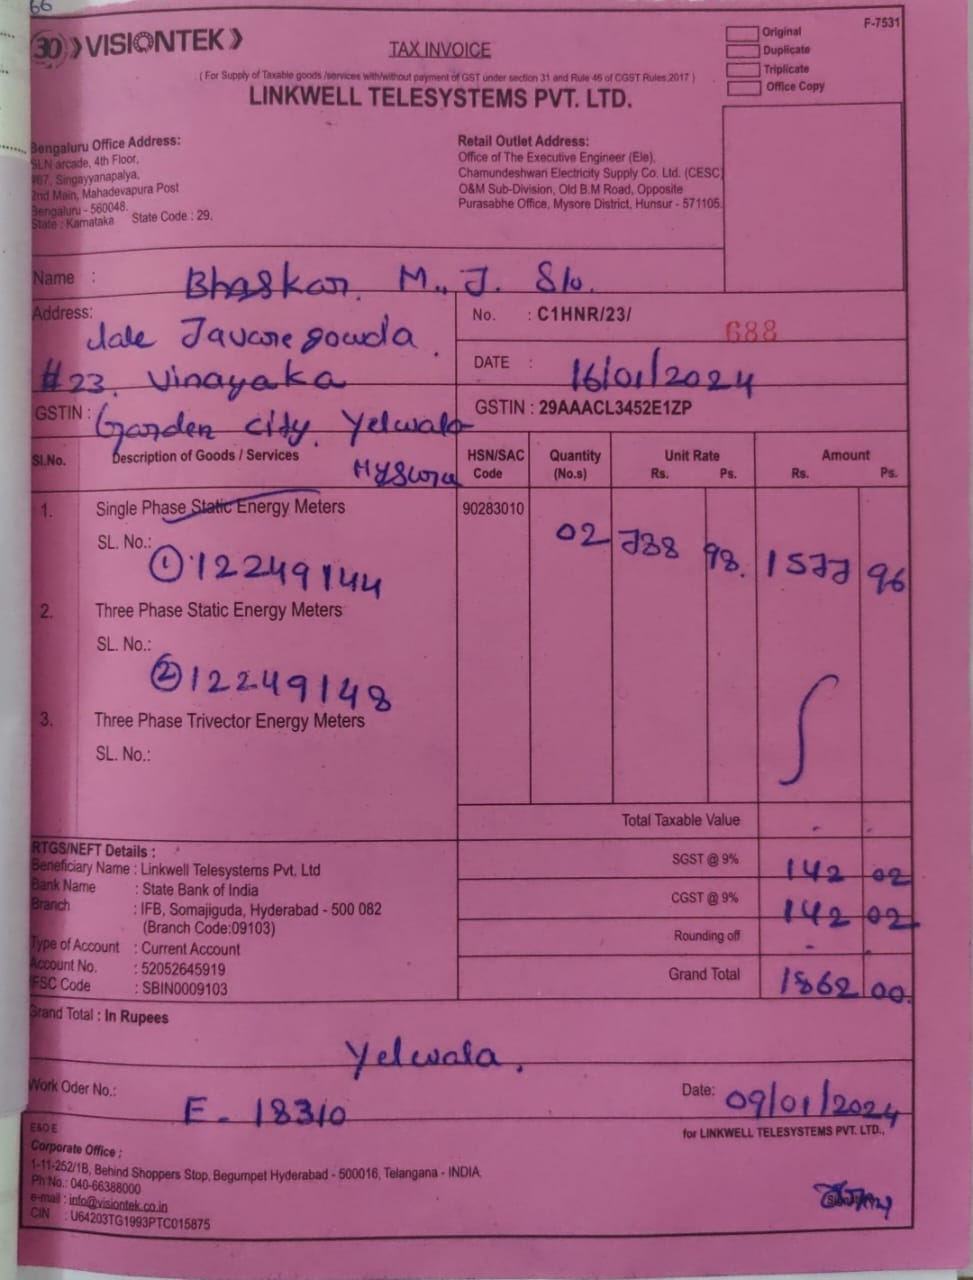 66
30 VISIONTEK
TAX INVOICE
F-7531
Original
Duplicate
Triplicate
Office Copy
( For Supply of Taxable goods /services with/without payment of GST under section 31 and Rule 46 of CGST Rules,2017 )
LINKWELL TELESYSTEMS PVT. LTD.
Bengaluru Office Address:
SLN arcade, 4th Floor,
#67, Singayyanapalya,
2nd Main, Mahadevapura Post
Bengaluru - 560048.
State : Karnataka State Code : 29.
Retail Outlet Address:
Office of The Executive Engineer (Ele),
Chamundeshwari Electricity Supply Co. Ltd. (CESC)
O&M Sub-Division, Old B.M Road, Opposite
Purasabhe Office, Mysore District, Hunsur - 571105.
Name : Bhaskar. M. J. S/o.
Address:
late Javaregowda
#23, Vinayaka
GSTIN : Garden city, Yelwala
Mysore
No. : C1HNR/23/ 688
DATE : 16/01/2024
GSTIN : 29AAACL3452E1ZP
Sl.No. Description of Goods / Services HSN/SAC Code Quantity (No.s) Unit Rate Rs. Ps. Amount Rs. Ps.
1. Single Phase Static Energy Meters 90283010 02 788 98. 1577 96
SL. No.:
① 12249144
2. Three Phase Static Energy Meters
SL. No.:
② 12249148
3. Three Phase Trivector Energy Meters
SL. No.:
Total Taxable Value - -
SGST @ 9% 142 02
CGST @ 9% 142 02
Rounding off - -
Grand Total 1862 00.
RTGS/NEFT Details :
Beneficiary Name : Linkwell Telesystems Pvt. Ltd
Bank Name : State Bank of India
Branch : IFB, Somajiguda, Hyderabad - 500 082
(Branch Code:09103)
Type of Account : Current Account
Account No. : 52052645919
IFSC Code : SBIN0009103
Grand Total : In Rupees
Yelwala.
Work Oder No.: E - 18310 Date: 09/01/2024
E&O E
for LINKWELL TELESYSTEMS PVT. LTD.,
Corporate Office :
1-11-252/1B, Behind Shoppers Stop, Begumpet Hyderabad - 500016, Telangana - INDIA
Ph No.: 040-66388000
e-mail : info@visiontek.co.in
CIN : U64203TG1993PTC015875